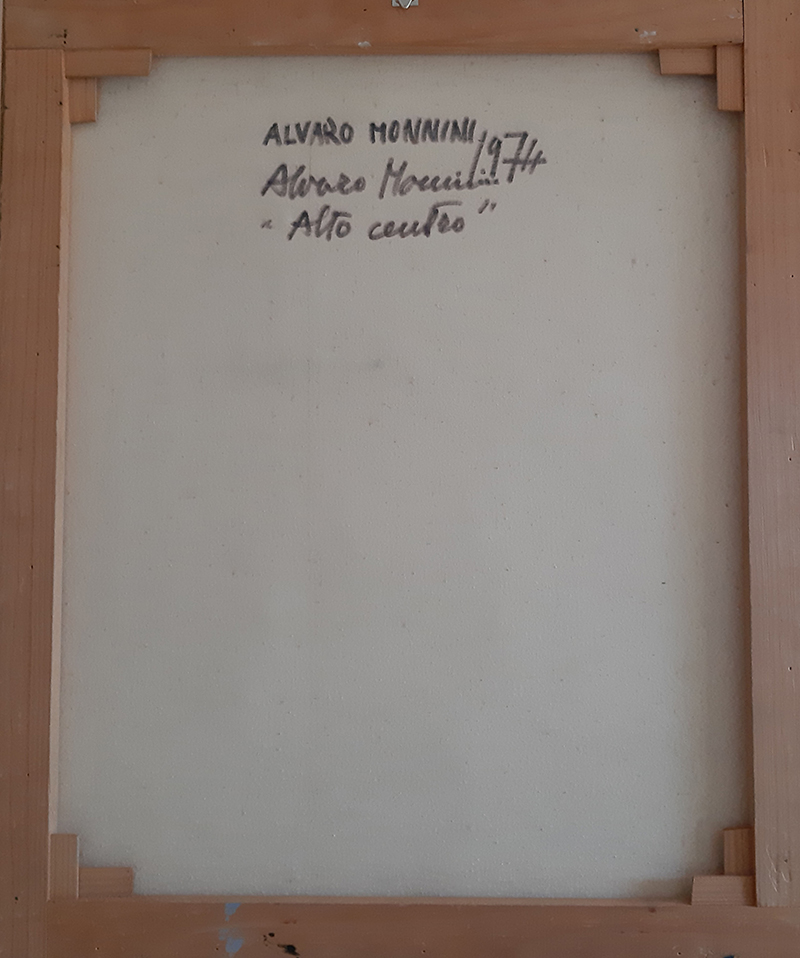 ALVARO MONNINI
Alvaro Monnini 1974
" Alto centro "